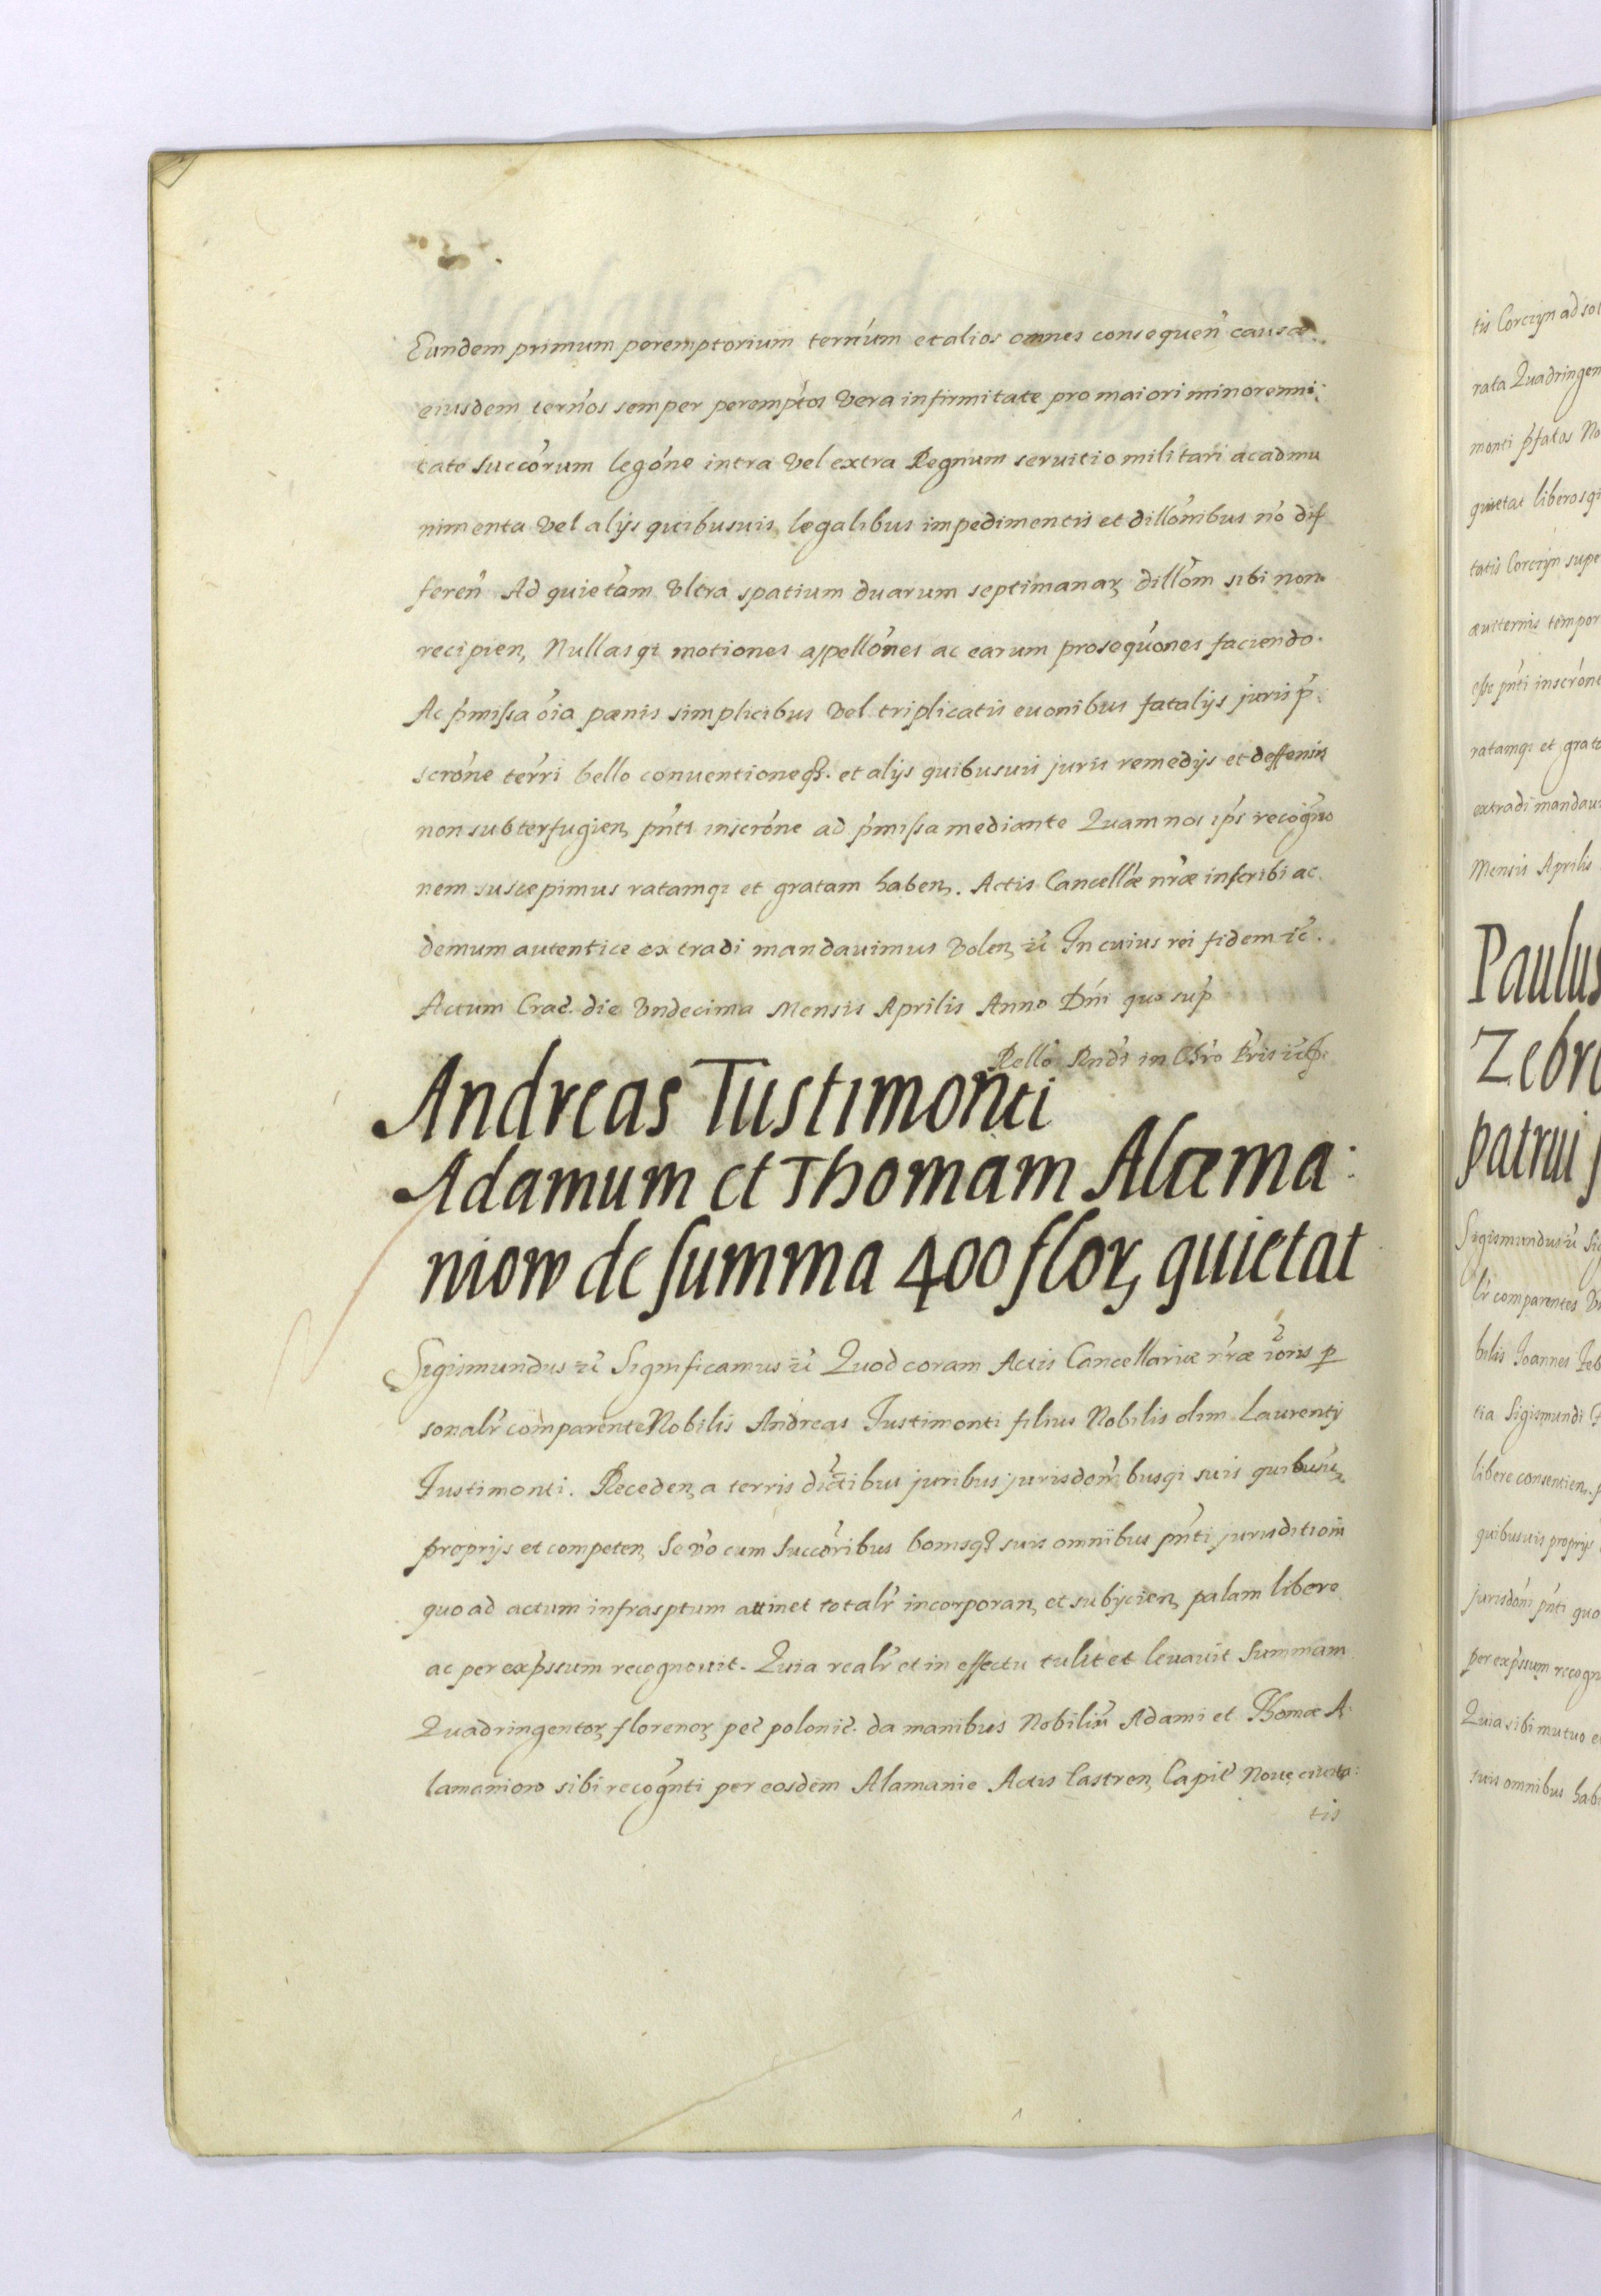 Eundem primum peremptorium tern̄um et alios omnes consequen̄ causæ
eiusdem tern̄os semper perempt̄os vera infirmitate pro maiori minorenni:
tate Succōrum legōne intra vel extra Regnum seruitio militari ac admu
nimenta vel alijs quibusuis legalibus impedimentis et dillōnibus nō dif
feren̄ Ad quietām vltra spatium duarum septimanaꝝ dillōm sibi non
recipien, Nullasqꝫ motiones appellōnes ac earum prosequōnes faciendo.
Ac p̄missa ōia pænis simplicibus vel triplicatis euonibus fatalijs juris p̄:
scrōne terr̄i bello conuentioneqꝫ. et alijs quibusuis juris remedijs et deffensis
non subterfugien, pn̄ti inscrōne ad p̄missa mediante Quam nos ip̄s recogn̄o
nem suscepimus ratamqꝫ et gratam haben,. Actis Cancellæ nr̄æ inscribi ac
demum autentice extradi mandauimus volen, ꝛc̄ In cuius rei fidem ꝛc̄.
Actum Crac̄. die vndecima Mensis Aprilis Anno Dn̄i quo sup̄
Rellō Rnd̄i in Chr̄o Pr̄is
Andreas Iustimonti
Adamum et Thomam Alæma:
niow de summa 400 floꝝ quietat
Sigismundus ꝛc̄ Significamus ꝛc̄ Quod coram Actis Cancellariæ nr̄æ ꝑ
sonalr̄ comparente Nobilis Andreas Iustimonti filius Nobilis olim Laurentij
Iustimonti. Receden, a terris juribus jurisdom̄busqꝫ suis quibusuis
proprijs et competen, Se vō cum Succōribus bonisqꝫ suis omnibus pn̄ti jurisditioni
quo ad actum infrasptum attinet totalr̄ incorporan, et subijcien, palam libere
ac per exp̄ssum recognouit. Quia realr̄ et in effectu tulit et leuauit Summam
Quadringentoꝝ florenoꝝ pec̄ polonic̄. da manibus Nobiliūm Adami et Thomæ A:
lamaniow sibi recogn̄ti per eosdem Alamanie Actis Castren, Capit̄ Noue ciuita:
tis
tis Corczyn ad sol
rata Quadringen
monti p̄fatos No
quietat liberosqꝫ
tatis Corczyn supe
æuiternis tempor
pn̄ti inscrōne
ratamqꝫ et grata
extradi mandaui
Mensis Aprilis
Paulus
Zebrz
patrui
Sigismundus ꝛc̄ Sig
lr̄ comparentes
bilis Joannes Zeb
tia Sigismundi
libere consentien,
quibusuis proprijs
jurisdōni pn̄ti quo
per exp̄ssum recogn
Quia sibi mutuo e
suis omnibus hab